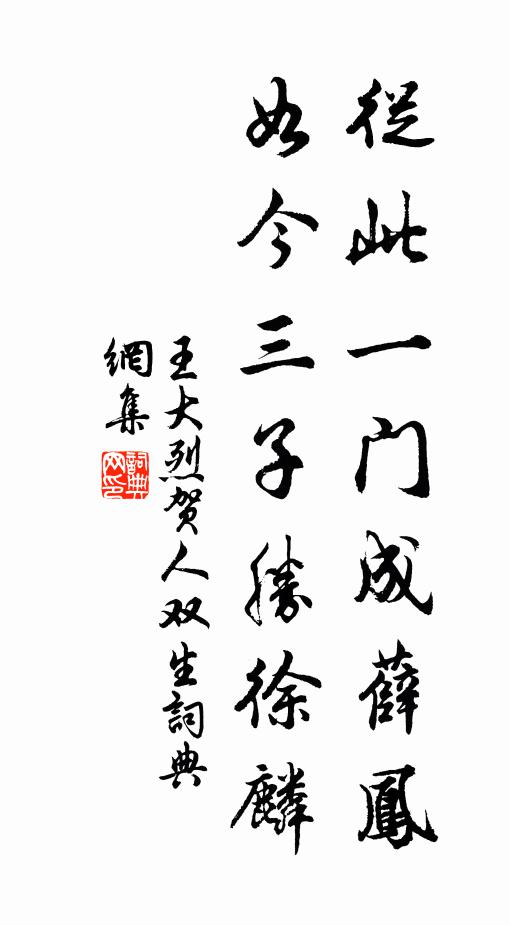 從此一门成薛鳳
如今三子勝徐麟
王大烈贺人双生詞典
網集
詞典網印